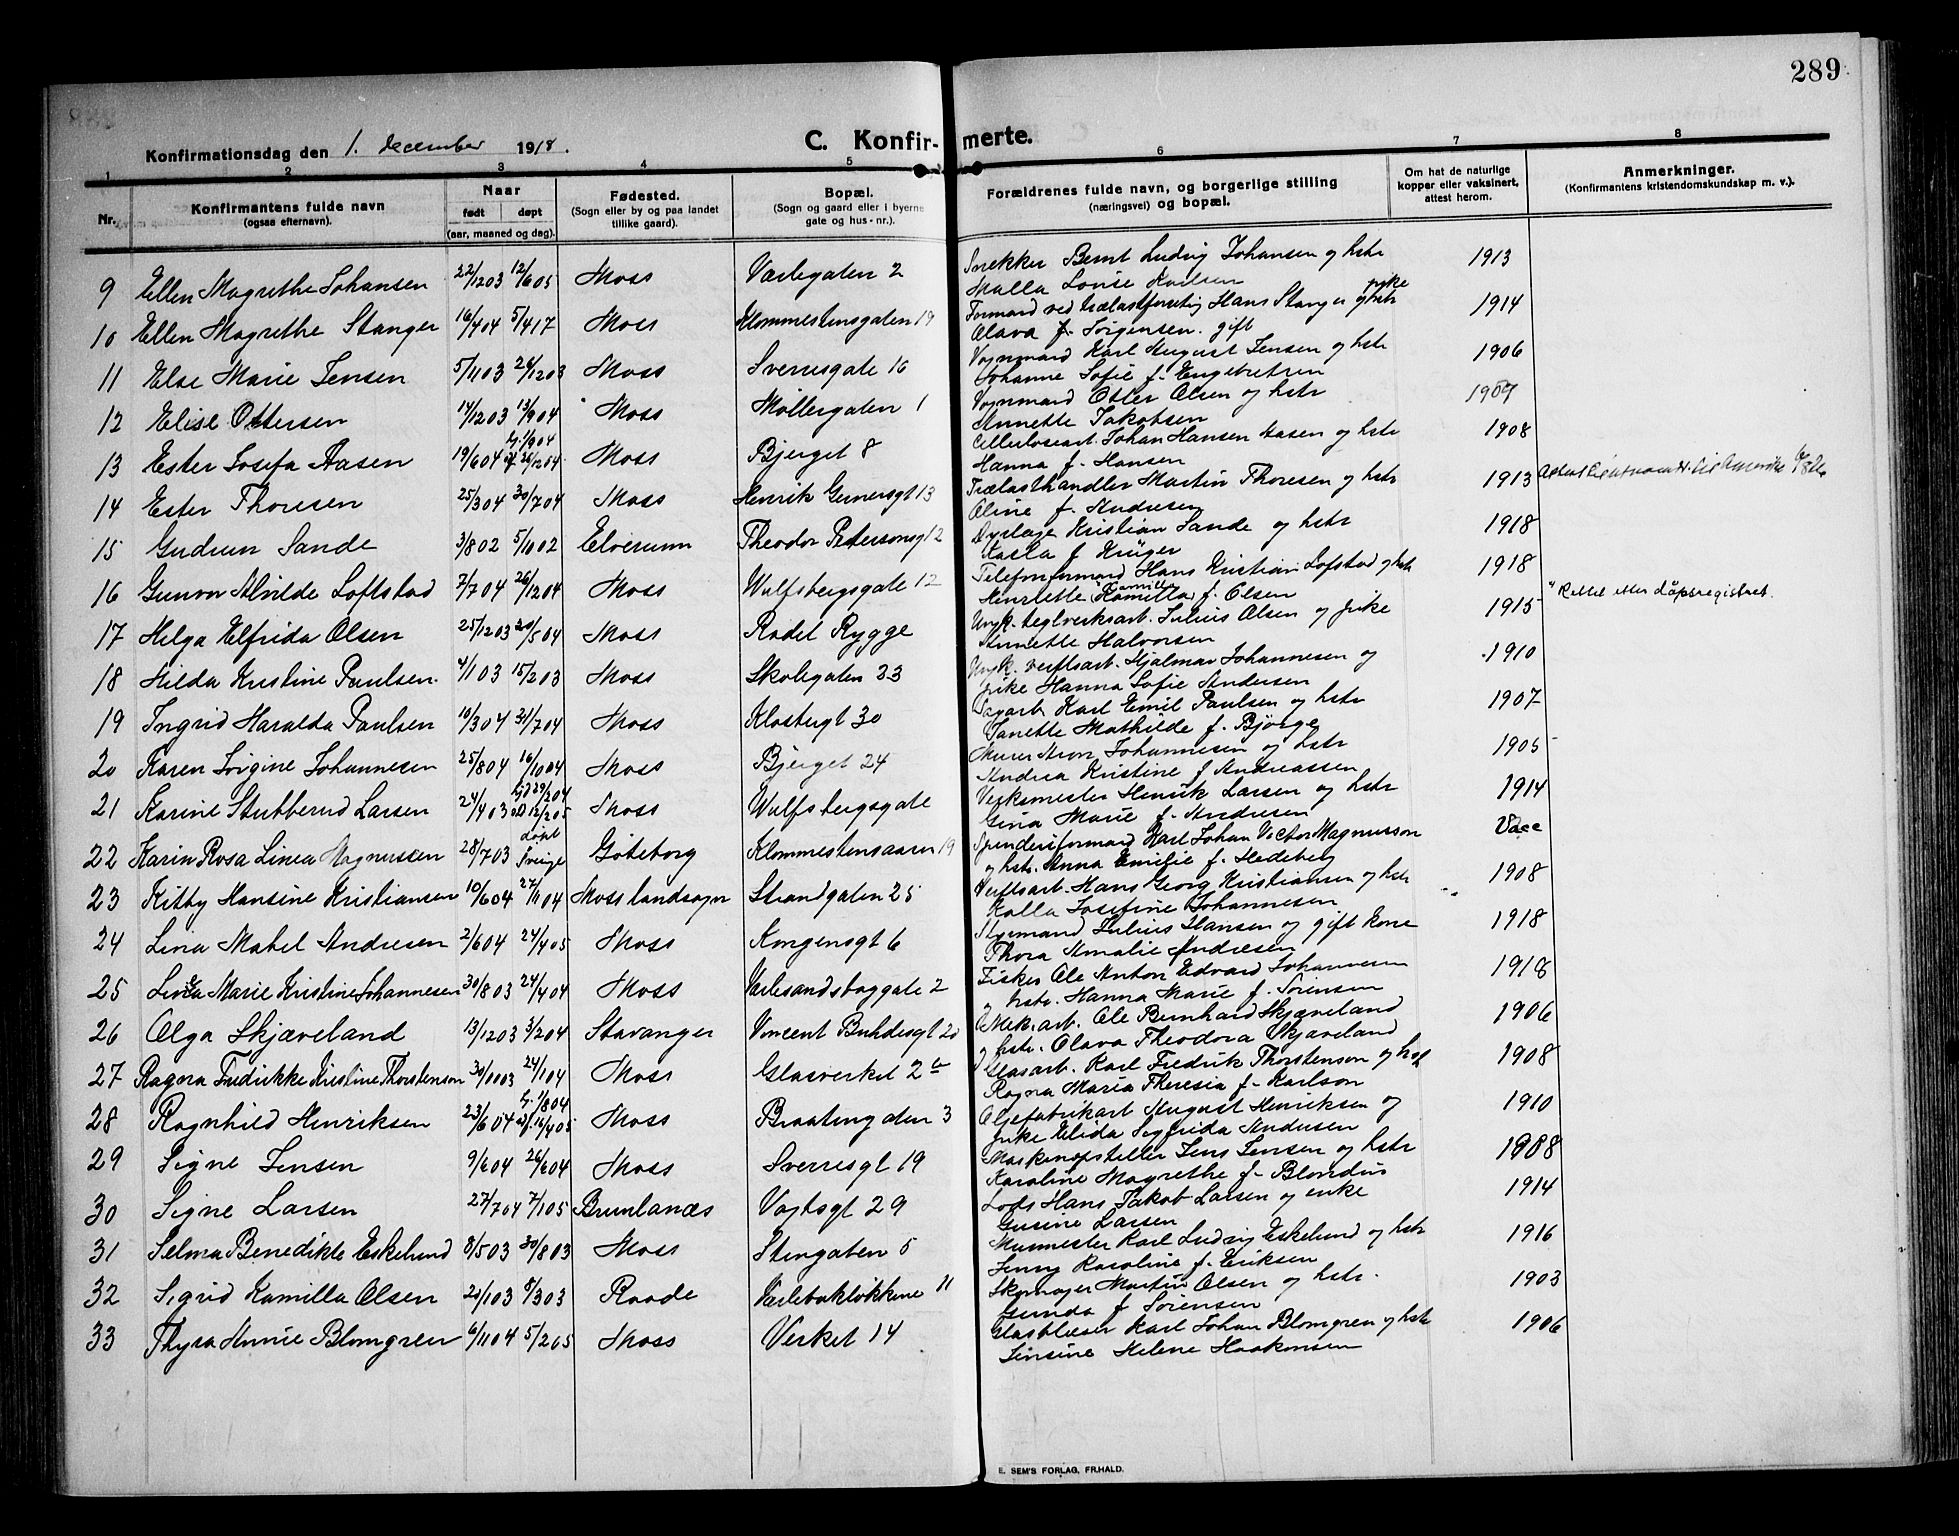 289
Konfirmationsdag den 1. december 1918.
C. Konfirmerte.
1 2 3 4 5 6 7 8
Nr.
Konfirmantens fulde navn
(ogsaa efternavn).
Naar
født døpt
(aar, maaned og dag).
Fødested.
(Sogn eller by og paa landet
tillike gaard).
Bopæl.
(Sogn og gaard eller i byerne
gate og hus-nr.).
Forældrenes fulde navn, og borgerlige stilling
(næringsvei) og bopæl.
Om hat de naturlige
kopper eller vaksinert,
attest herom.
Anmerkninger.
(Konfirmantens kristendomskundskap m. v.).
9 Ellen Magrethe Johansen 22/12 03 12/6 05 Moss Varlegaten 2 Snekker Bernt Ludvig Johansen og hstr 1913
Malla Louise Karlsen
10 Ellen Magrethe Stanger 16/4 04 5/4 17 Moss Klommestensgaten 19 Formand ved Hans Stanger 1914
Olava f. Jørgensen. gift
11 Else Marie Jensen 5/11 03 26/12 03 Moss Sverresgate 16 Vognmand Karl August Jensen og hstr 1906
Johanne Sofie f. Engebretsen
12 Elise Ottersen 14/12 03 13/9 04 Moss Møllergaten 1 Vognmand Otter Olsen og hstr 1907
Annette Jakobsen
13 Ester Josefa Aasen 19/6 04 hj. 1/9 04 26/12 04 Moss Bjerget 8 Celluloseart. Johan Hansen Aasen og hstr 1908
Hanna f. Hansen
14 Ester Thoresen 25/3 04 30/7 04 Moss Henrik Gernersgt 13 Trælasthandler Martin Thoresen og hstr 1913
Oline f. Andresen
15 Gudrun Sande 3/8 02 5/10 02 Elverum Theodor Petersonsgt 2 Dyrlæge Kristian Sande og hstr 1918
Kasla f. Krüger
16 Gunvor Alvilde Loftstad 7/7 04 26/12 04 Moss Wulfsbergsgate 12 Telefonformand Hans Kristian Lofstad og hstr 1918
Henriette Kamilla f. Olsen " Rettet etter dåpsregistret.
17 Helga Elfrida Olsen 25/12 03 20/5 04 Moss Rødet Rygge Ungk. teglverksarb. Julius Olsen og pike 1915
Annette Halvorsen
18 Hilda Kristine Paulsen. 4/1 03 15/2 03 Moss Skolegaten 23 Ungk. verftsart. Hjalmar Johannesen og 1910
pike Hanna Sofie Andersen
19 Ingrid Haralda Paulsen 10/3 04 31/7 04 Moss Klostergt 30 Karl Emil Paulsen og hstr 1907
Janette Mathilde f. Bjørge
20 Karen Jørgine Johannesen 25/8 04 16/10 04 Moss Bjerget 24 Murer Aron Johannesen og hstr 1905
Andrea Kristine f. Andreassen
21 Karine Stubberud Larsen 24/4 03 29/2 04 12/2 05 Moss Wulfsbergsgate Verksmester Henrik Larsen og hstr 1914
Gina Marie f. Andresen
22 Karin Rosa Linea Magnussen 28/7 03 døpt Sverige Göteborg Klommestensaaren 19 Karl Johan Victor Magnusson Vacc
og hstr. Anna Emilie f. Hedeberg
23 Kitby Hansine Kristiansen 10/6 04 27/11 04 Moss landsogn Strandgaten 25 Verftsart. Hans Georg Kristiansen og hstr 1908
Kalla Josefine Johannesen
24 Lina Mabel Andresen 2/6 04 24/4 05 Moss Kongensgt 6 Styrmand Julius Hansen og gift kone 1918
Thora Amalie Andresen
25 Linea Marie Kristine Johannesen 30/8 03 24/4 04 Moss Værlesandsbaggate 2 Fisker Ole Anton Edvard Johannesen 1918
hstr. Hanna Marie f. Sørensen
26 Olga Skjæveland 13/12 03 3/2 04 Stavanger Vincent Buhdesgt 20 Mek. arb. Ole Bernhard Skjæveland 1906
hstr. Olava Theodora Skjæveland
27 Ragna Fredrikke Kristine Thorstenson 30/10 03 24/1 04 Moss Glasverket 2 Glasarb. Karl Fredrik Thorstenson og hstr 1908
Ragna Maria Theresia f. Karlson
28 Ragnhild Henriksen 23/6 04 hj. 1/8 04 16/4 05 Moss Braatengaden 3 Oljefabrikart August Henriksen og 1910
pike Elida Sigfrida Andersen
29 Signe Jensen 9/6 04 26/6 04 Moss Sverresgt 19 Maskinopsteller Jens Jensen og hstr 1908
Karoline Magrethe f. Blondin
30 Signe Larsen 27/7 04 7/1 05 Brunlanæs Vogtsgt 29 Lods Hans Jakob Larsen og enke 1914
Gusine Larsen
31 Selma Benedikte Eskelund 8/5 03 30/8 03 Moss Stengaten 5 Murmester Karl Ludvig Eskelund og hstr 1916
Jenny Karoline f. Eriksen
32 Sigrid Kamilla Olsen 20/1 03 8/3 03 Raade Værlebakløkkene 11 Skomager Martin Olsen og hstr. 1903
Gunda f. Sørensen
33 Thyra Annie Blomgren 6/11 04 5/2 05 Moss Verket 14 Glasblæser Karl Johan Blomgren og hstr 1906
Jensine Helene Haakonsen
E. SEM'S FORLAG, FR.HALD.